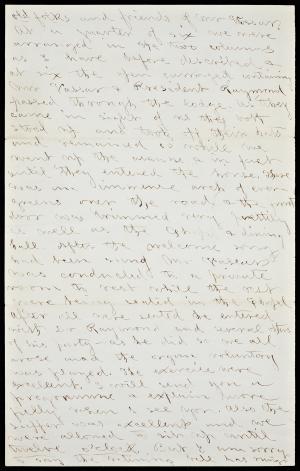 old folks and friends of Mr Vassar.
At a quarter of six we were
arranged in the two columns
as I have before described &
at six the open carriage containing
Mr Vassar & President Raymond
passed through the lodge. As they
came in sight of us they both
stood up and took off their hats
and remained so while we
went up the avenue in fact
until they entered the house. There
was an immense arch of ever
greens over the road & the front
door was trimmed very prettily
as well as the Chapel & dining
hall. After the welcome song
had been sung Mr Vassar
was conducted to a private
room to rest while the rest
were being seated in the Chapel
after all were seated he entered
with Dr Raymond and several others
of his party as he did so we all
arose and the organ voluntary
was played. The exercises were
excellent. I will send you a
programme & explain more
fully when I see you. Also the
supper was excellent and we
were allowed to sit up until
twelve o'clock. But I am sorry
to say the retiring bell has rung